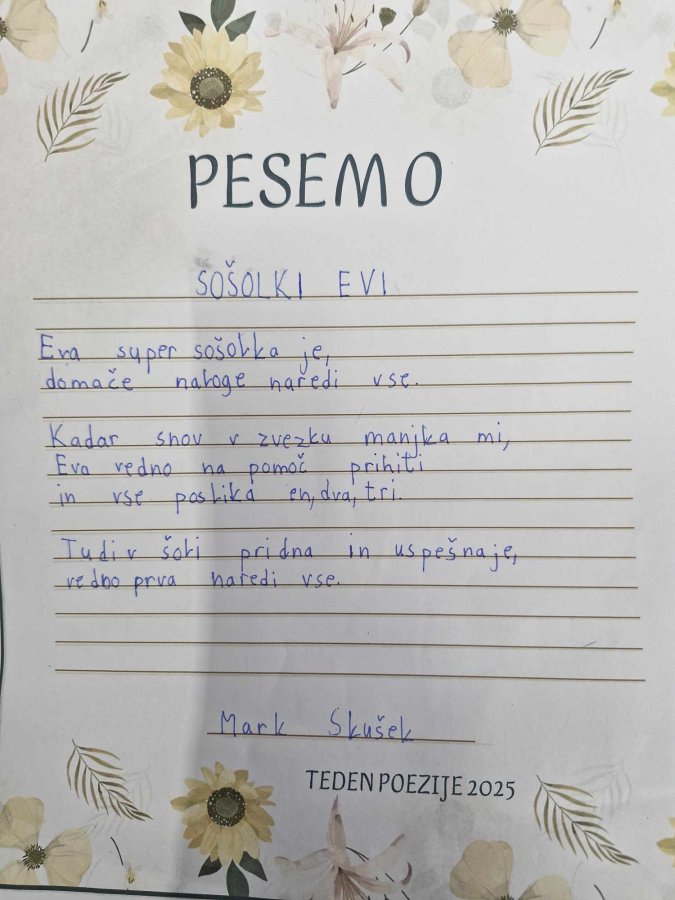 PESEMO
SOŠOLKI EVI
Eva super sošolka je,
domače naloge naredi vse.
Kadar snov v zvezku manjka mi,
Eva vedno na pomoč prihiti
in vse poslika en, dva, tri.
Tudi v šoli pridna in uspešna je,
vedno prva naredi vse.
Mark Skušek
TEDEN POEZIJE 2025